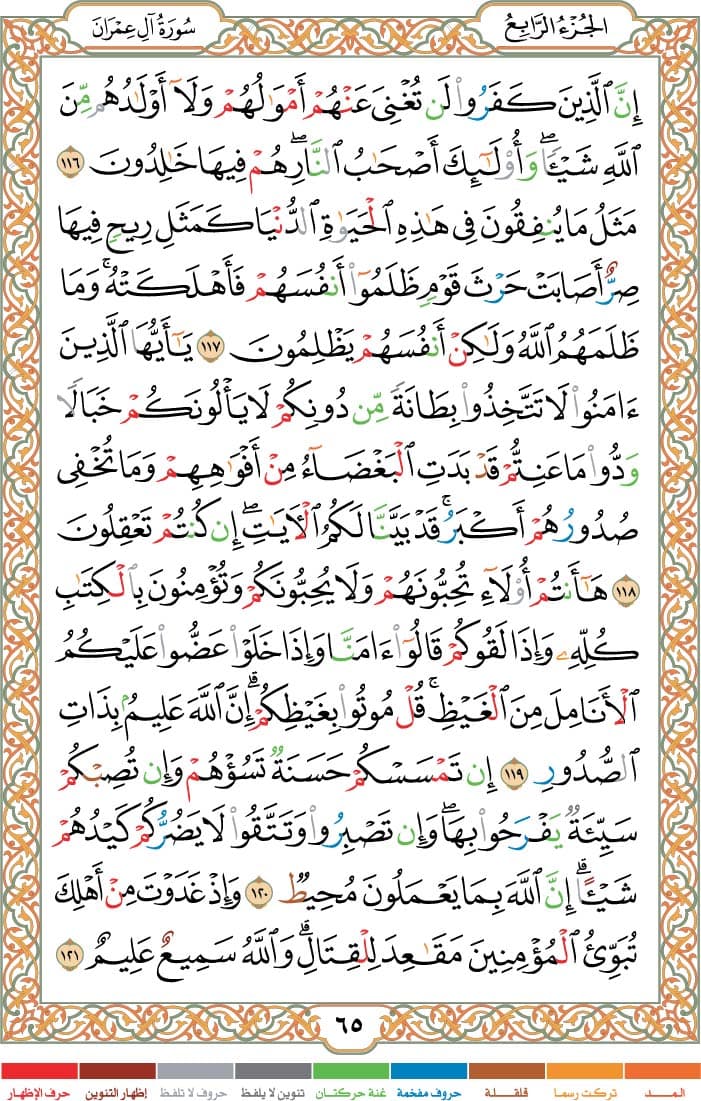 الجُزْءُ الرَّابِعُ
سُورَةُ آلِ عِمْرَانَ
إِنَّ ٱلَّذِينَ كَفَرُوا۟ لَن تُغْنِىَ عَنْهُمْ أَمْوَٰلُهُمْ وَلَآ أَوْلَٰدُهُم مِّنَ
ٱللَّهِ شَيْـًٔا ۖ وَأُو۟لَٰٓئِكَ أَصْحَٰبُ ٱلنَّارِ ۖ هُمْ فِيهَا خَٰلِدُونَ ١١٦
مَثَلُ مَا يُنفِقُونَ فِى هَٰذِهِ ٱلْحَيَوٰةِ ٱلدُّنْيَا كَمَثَلِ رِيحٍ فِيهَا
صِرٌّ أَصَابَتْ حَرْثَ قَوْمٍ ظَلَمُوٓا۟ أَنفُسَهُمْ فَأَهْلَكَتْهُ ۚ وَمَا
ظَلَمَهُمُ ٱللَّهُ وَلَٰكِنْ أَنفُسَهُمْ يَظْلِمُونَ ١١٧ يَٰٓأَيُّهَا ٱلَّذِينَ
ءَامَنُوا۟ لَا تَتَّخِذُوا۟ بِطَانَةً مِّن دُونِكُمْ لَا يَأْلُونَكُمْ خَبَالًا
وَدُّوا۟ مَا عَنِتُّمْ قَدْ بَدَتِ ٱلْبَغْضَآءُ مِنْ أَفْوَٰهِهِمْ وَمَا تُخْفِى
صُدُورُهُمْ أَكْبَرُ ۚ قَدْ بَيَّنَّا لَكُمُ ٱلْءَايَٰتِ ۖ إِن كُنتُمْ تَعْقِلُونَ
١١٨ هَٰٓأَنتُمْ أُو۟لَآءِ تُحِبُّونَهُمْ وَلَا يُحِبُّونَكُمْ وَتُؤْمِنُونَ بِٱلْكِتَٰبِ
كُلِّهِۦ وَإِذَا لَقُوكُمْ قَالُوٓا۟ ءَامَنَّا وَإِذَا خَلَوْا۟ عَضُّوا۟ عَلَيْكُمُ
ٱلْأَنَامِلَ مِنَ ٱلْغَيْظِ ۚ قُلْ مُوتُوا۟ بِغَيْظِكُمْ ۗ إِنَّ ٱللَّهَ عَلِيمٌۢ بِذَاتِ
ٱلصُّدُورِ ١١٩ إِن تَمْسَسْكُمْ حَسَنَةٌ تَسُؤْهُمْ وَإِن تُصِبْكُمْ
سَيِّئَةٌ يَفْرَحُوا۟ بِهَا ۖ وَإِن تَصْبِرُوا۟ وَتَتَّقُوا۟ لَا يَضُرُّكُمْ كَيْدُهُمْ
شَيْـًٔا ۗ إِنَّ ٱللَّهَ بِمَا يَعْمَلُونَ مُحِيطٌ ١٢٠ وَإِذْ غَدَوْتَ مِنْ أَهْلِكَ
تُبَوِّئُ ٱلْمُؤْمِنِينَ مَقَٰعِدَ لِلْقِتَالِ ۗ وَٱللَّهُ سَمِيعٌ عَلِيمٌ ١٢١
٦٥
المـــد تركت رسما قلقـلة حروف مفخمة غنة حركتان تنوين لا يلفظ حروف لا تلفظ إظهار التنوين حرف الإظهار